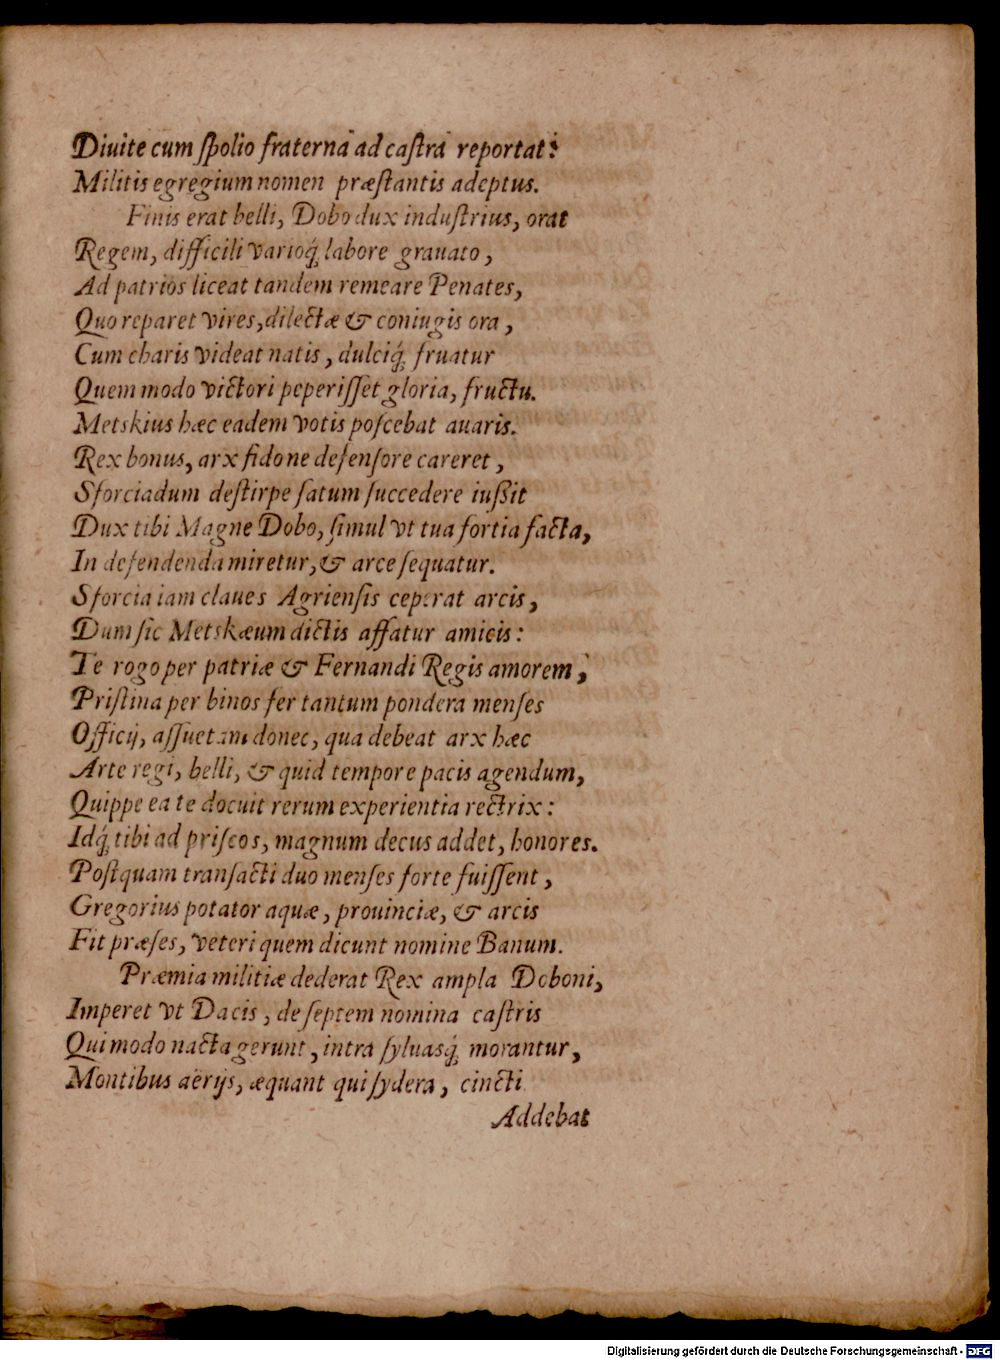 Diuite cum ſpolio fraterna ad caſtra reportat:
Militis egregium nomen præſtantis adeptus.
Finis erat belli, Dobo dux induſtrius, orat
Regem, difficili varioq́ labore grauato,
Ad patrios liceat tandem remeare Penates,
Quo reparet vires, dilectæ & coniugis ora,
Cum charis videat natis, dulciq́ fruatur
Quem modo victori peperiſſet gloria, fructu.
Metskius hæc eadem votis poſcebat auaris.
Rex bonus, arx fido ne defenſore careret,
Sforciadum deſtirpe ſatum ſuccedere iußit
Dux tibi Magne Dobo, ſimul vt tua fortia facta,
In defendenda miretur, & arce ſequatur.
Sforcia iam claues Agrienſis ceperat arcis,
Dum ſic Metskæum dictis affatur amicis:
Te rogo per patriæ & Fernandi Regis amorem,
Priſtina per binos fer tantum pondera menſes
Officij, aſſuetam donec, qua debeat arx hæc
Arte regi, belli, & quid tempore pacis agendum,
Quippe ea te docuit rerum experientia rectrix:
Idq́ tibi ad priſcos, magnum decus addet, honores.
Poſtquam tranſacti duo menſes forte fuiſſent,
Gregorius potator aquæ, prouinciæ, & arcis
Fit præſes, veteri quem dicunt nomine Banum.
Præmia militiæ dederat Rex ampla Doboni,
Imperet vt Dacis, de ſeptem nomina caſtris
Qui modo nacta gerunt, intra ſyluasq́ morantur,
Montibus aërijs, æquant qui ſydera, cincti
Addebat
Digitalisierung gefördert durch die Deutsche Forschungsgemeinschaft - DFG